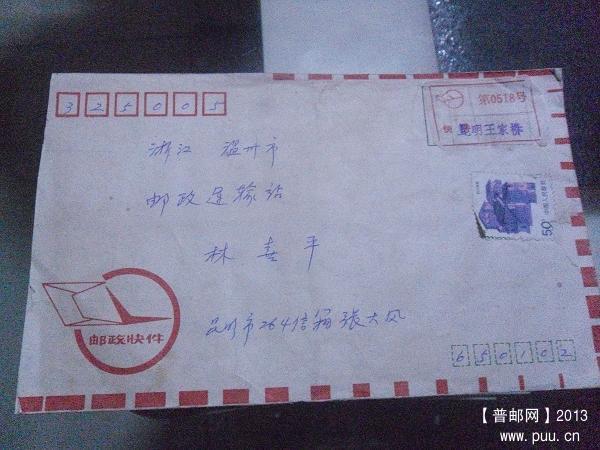 325005
第0518号
快
昆明王家桥
浙江 温州市
邮政运输站
林喜平
50
邮政快件
昆明市264信箱张大凤
650102
【普邮网】2013
www.puu.cn